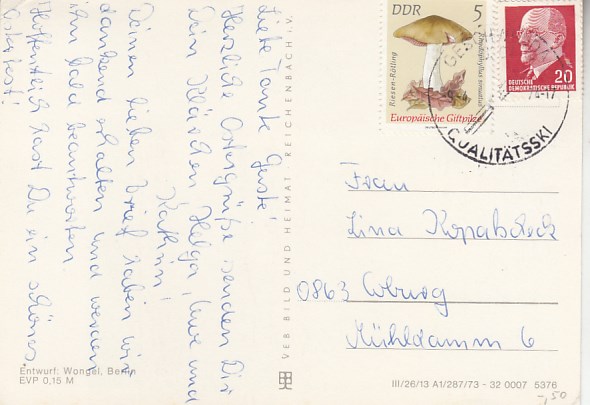 Liebe Tante Guste!
Herzliche Ostergrüße senden Dir
Dein Klärchen Helga, Uwe und
Kathrin!
Deinen lieben Brief haben wir
dankend erhalten und werden
ihn bald beantworten.
Hoffentlich hast Du ein schönes
Osterfest!
Entwurf: Wongel, Berlin
EVP 0,15 M
VEB BILD UND HEIMAT REICHENBACH i. V.
DDR 5
Riesen-Rötling
Rhodophyllus sinuatus
Europäische Giftpilze
DEUTSCHE
DEMOKRATISCHE REPUBLIK
20
QUALITÄTSSKI
Frau
Lina
0863 Coburg
Mühldamm 6
III/26/13 A1/287/73 - 32 0007 5376
-,50